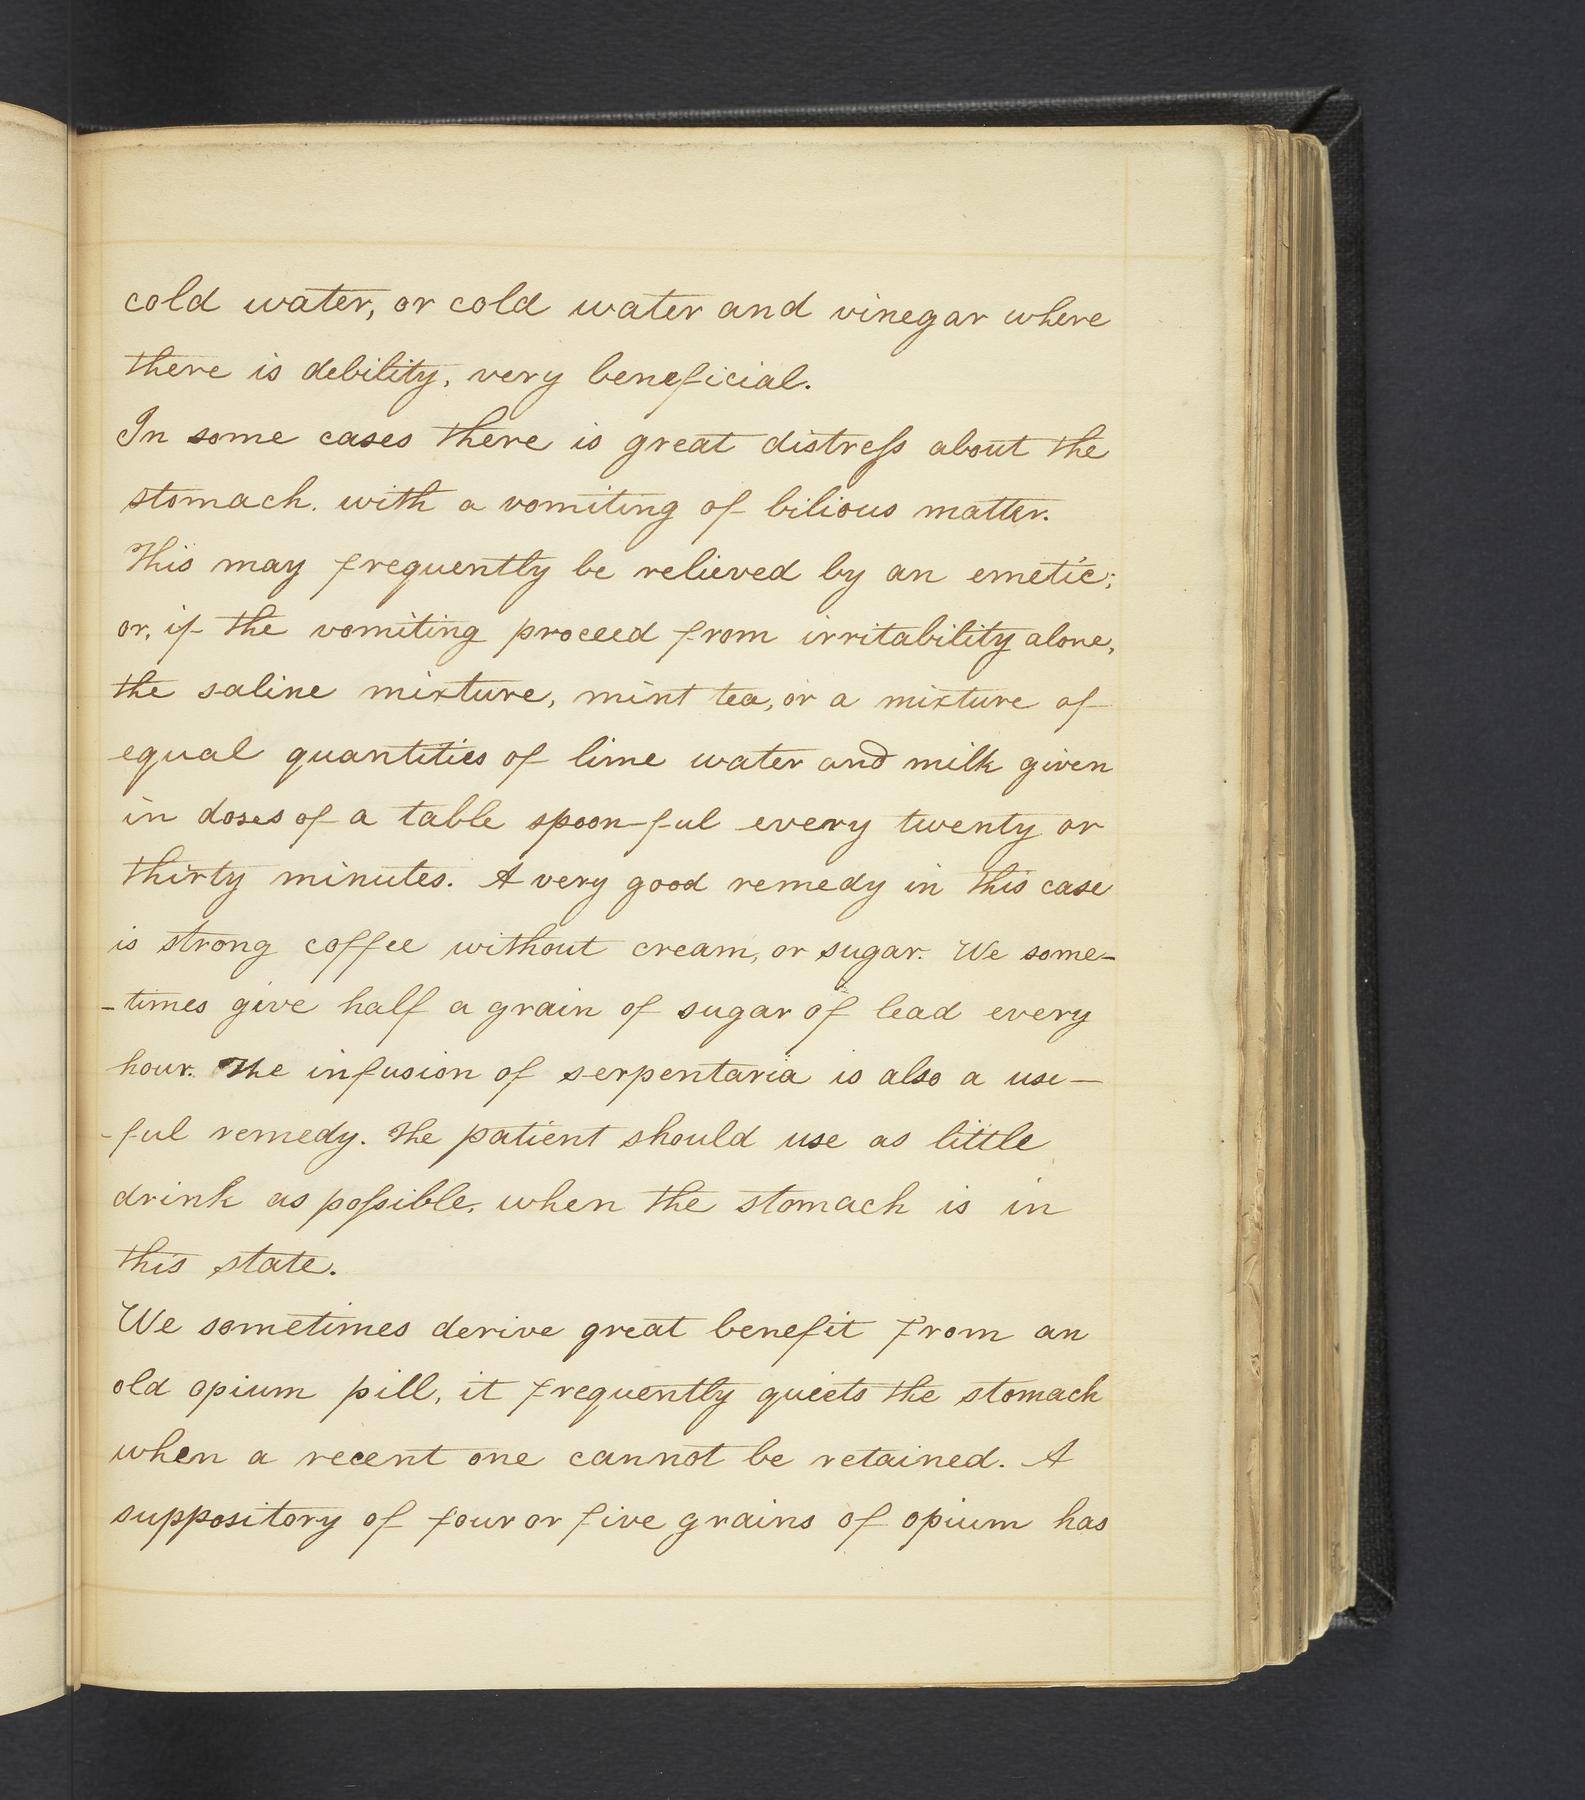 cold water, or cold water and vinegar where
there is debility, very beneficial.
In some cases there is great distreſs about the
stomach. with a vomiting of bilious matter.
This may frequently be relieved by an emetic;
or, if the vomiting proceed from irritability alone,
the saline mixture, mint tea, or a mixture of
equal quantities of lime water and milk given
in doses of a table spoon-ful every twenty or
thirty minutes. A very good remedy in this case
is strong coffee without cream, or sugar. We some-
-times give half a grain of sugar of lead every
hour. The infusion of serpentaria is also a use-
-ful remedy. The patient should use as little
drink as poſsible, when the stomach is in
this state.
We sometimes derive great benefit from an
old opium pill, it frequently quiets the stomach
when a recent one cannot be retained. A
suppository of four or five grains of opium has